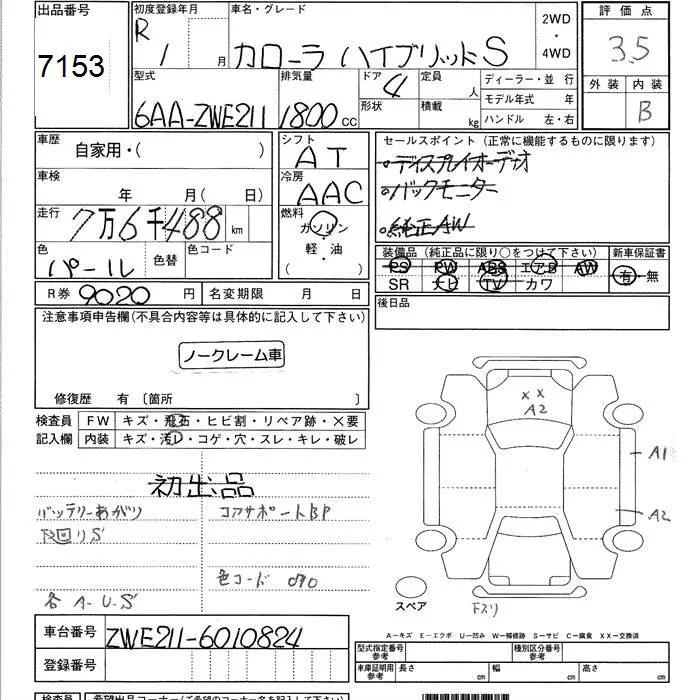 出品番号
7153
初度登録年月
R 1 月
車名・グレード
カローラ ハイブリッド S
2WD
・
4WD
評価点
3.5
外装 内装
B
型式
6AA-ZWE211
排気量
1800 CC
ドア 4
形状
定員 人
積載 kg
ディーラー・並 行
モデル年式 年
ハンドル 左・右
車歴
自家用・( )
車検
年 月( 日)
走行
7万6千488 km
色
パール
色替
色コード
シフト
AT
冷房
AAC
燃料
ガソリン
軽・油
( )
セールスポイント (正常に機能するものに限ります)
・ディスプレイオーディオ
・バックモニター
・純正AW
装備品 (純正品に限り○をつけて下さい)
PS PW ABS エアB AW
SR ナビ TV カワ
新車保証書
有・無
R券 9020 円
名変期限 月 日
後日品
注意事項申告欄(不具合内容等は具体的に記入して下さい)
ノークレーム車
修復歴 有 〔箇所 〕
検査員
記入欄
FW キズ・飛石・ヒビ割・リペア跡・X要
内装 キズ・汚レ・コゲ・穴・スレ・キレ・破レ
初出品
バッテリーあがり
コアサポートBP
下回りS
色コード 090
各 A.U.S
X X
A2
A1
A2
スペア
Fスリ
A-キズ E-エクボ U-凹み W-補修跡 S-サビ C-腐食 XX-交換済
車台番号
ZWE211-6010824
登録番号
型式指定番号
参考
種別区分番号
参考
車庫証明用
参考
長さ cm
幅 cm
高さ cm
検査員
希望出品コーナー(ご希望のコーナー名を記入して下さい)